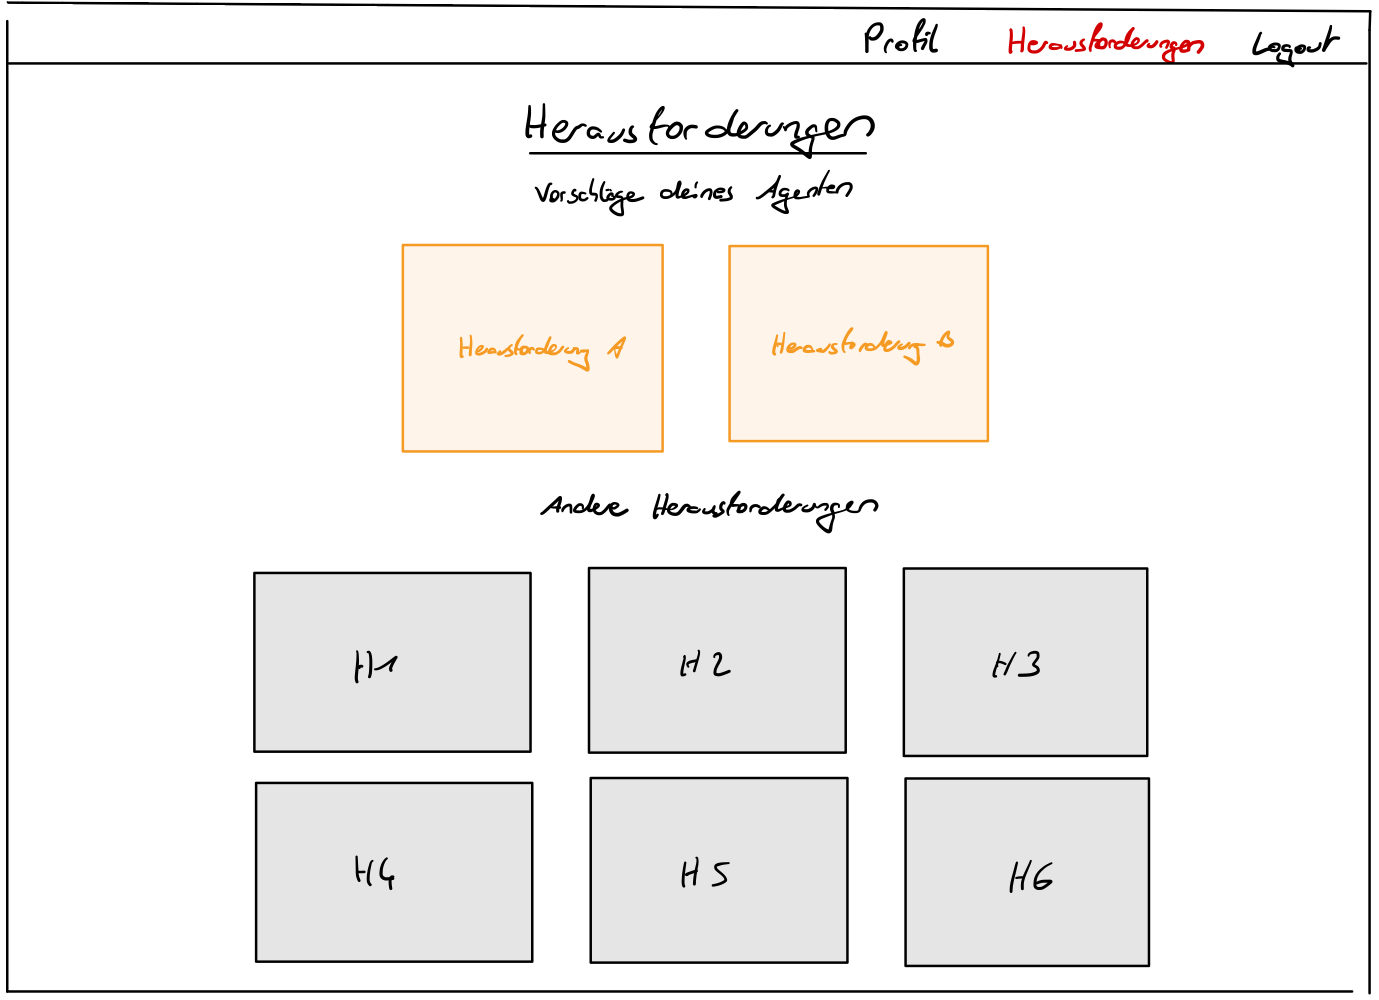 Profil Herausforderungen Logout
Herausforderungen
Vorschläge deines Agenten
Herausforderung A Herausforderung B
Andere Herausforderungen
H1 H2 H3
H4 H5 H6